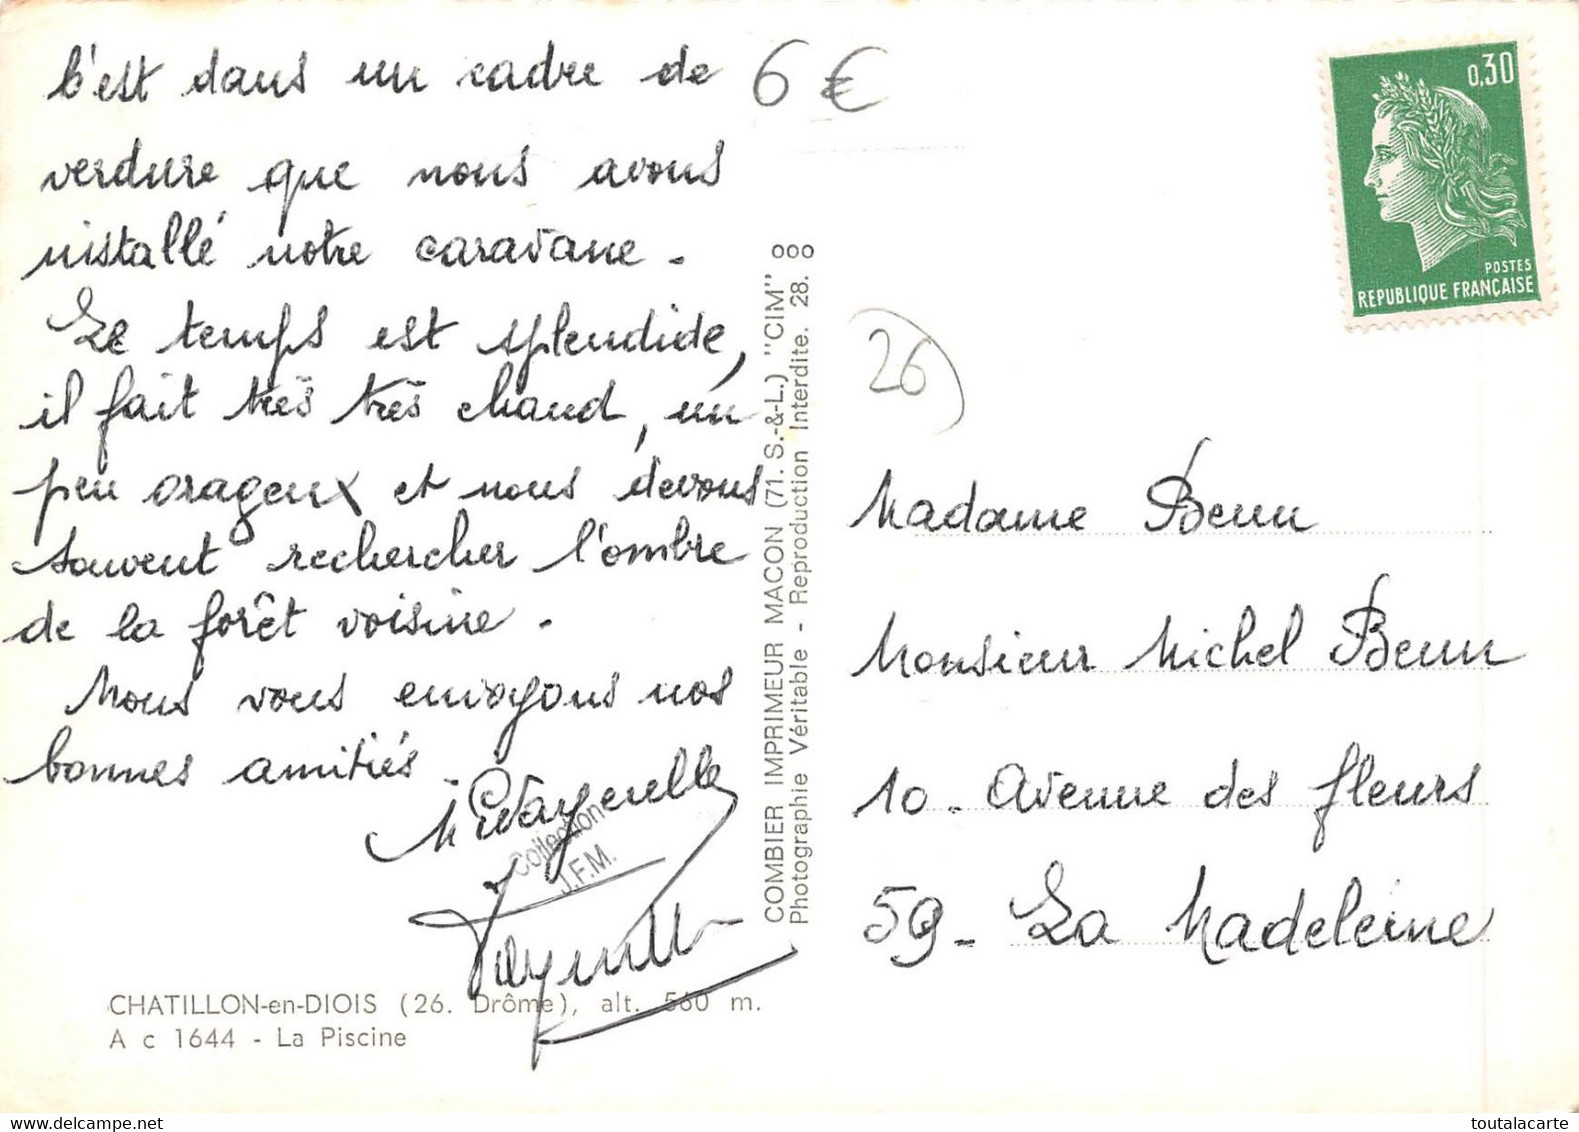 C'est dans un cadre de
verdure que nous avons
installé notre caravane.
Le temps est splendide,
il fait très très chaud, un
peu orageux et nous devons
souvent rechercher l'ombre
de la forêt voisine.
Nous vous envoyons nos
bonnes amitiés.
Collection
J.F.M.
CHATILLON-en-DIOIS (26. Drôme), alt. 560 m.
A c 1644 - La Piscine
COMBIER IMPRIMEUR MACON (71. S.-&-L.) "CIM" 000
Photographie Véritable - Reproduction Interdite. 28.
6 €
0,30
POSTES
REPUBLIQUE FRANÇAISE
26
Madame Benn
Monsieur Michel Benn
10. Avenue des fleurs
59 - La Madeleine
toutalacarte